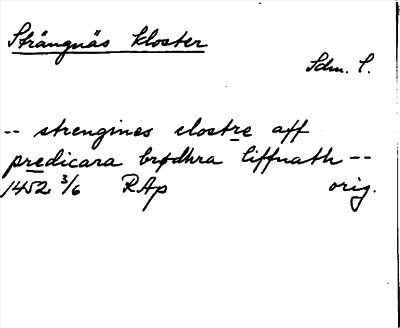 Strängnäs kloster
Sdm. S.
-- strengines clostre aff
predicara brødhra liffnath --
1452 3/6 RAp orig.